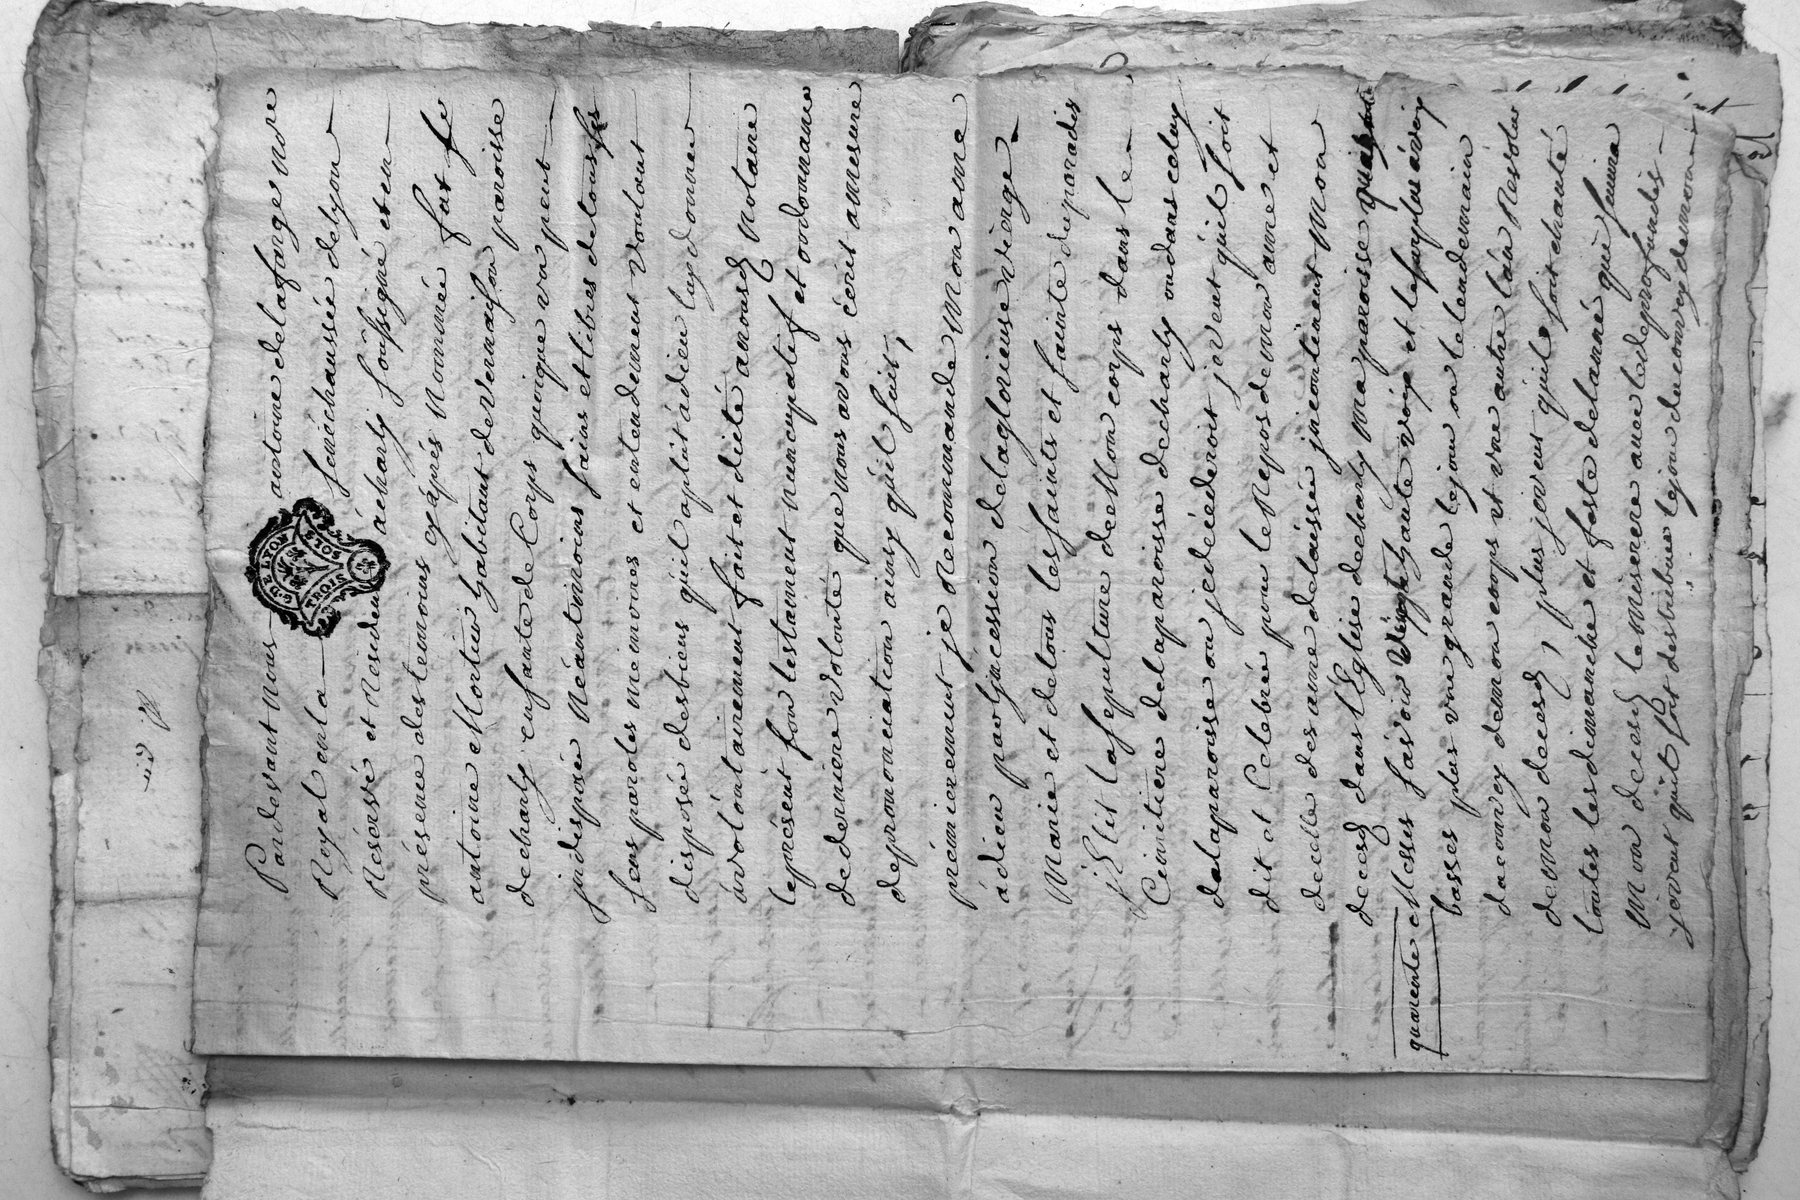 Pardevant Nous antoine delafarge no.re
G.D.E LYON TROIS SOLS
Royal en la sénéchaussée delyon
Réservé et Residen acharly soussigné et en
présence des temoins cyaprés Nommée fut fe
antoine Mortier habitant de Vernaison paroisse
decharly enfante de Corps quoique un peut
jndisposée Néantmoins sains et libres detous ses
sens paroles memoires et entendement voulant
disposée desbiens quil aplut àdieu luy donner
àvolontairement fait et dicté anousd Notaire
leprésent son testament nuncupatif et ordonnance
dederniere volonté que nous avons écrit amesure
deprononciation ainsy qu'il suit,
prémierement je Recommande Mon ame
àdieu par l'jncession delaglorieuse vierge
Marie et detous les saints et sainte duparadis
j'Elit la sepulture de Mon corps dans le
Cemitiere delaparoisse decharly ou dans celuy
delaparoisse ou jedécéderoit, jeveut qu'il soit
dit et Celebrée pour le Repos demon ame et
decelle des ame delaissée jncontinent Mon
decesd dans l'Eglise decharly Ma paroisse
quarente Messes sav'oir haute voix et
basses plus une grande lejour ou lelendemain
duconvoy demon corps et une autre l'an Resolus
demon decesd, plus jeveut qu'il soit chanté
toutes les dimanche et feste delanné qui suivra
Mon decesd le Miserere avec ledeprofundis
jeveut qu'il soit destribue lejour duconvoy demon